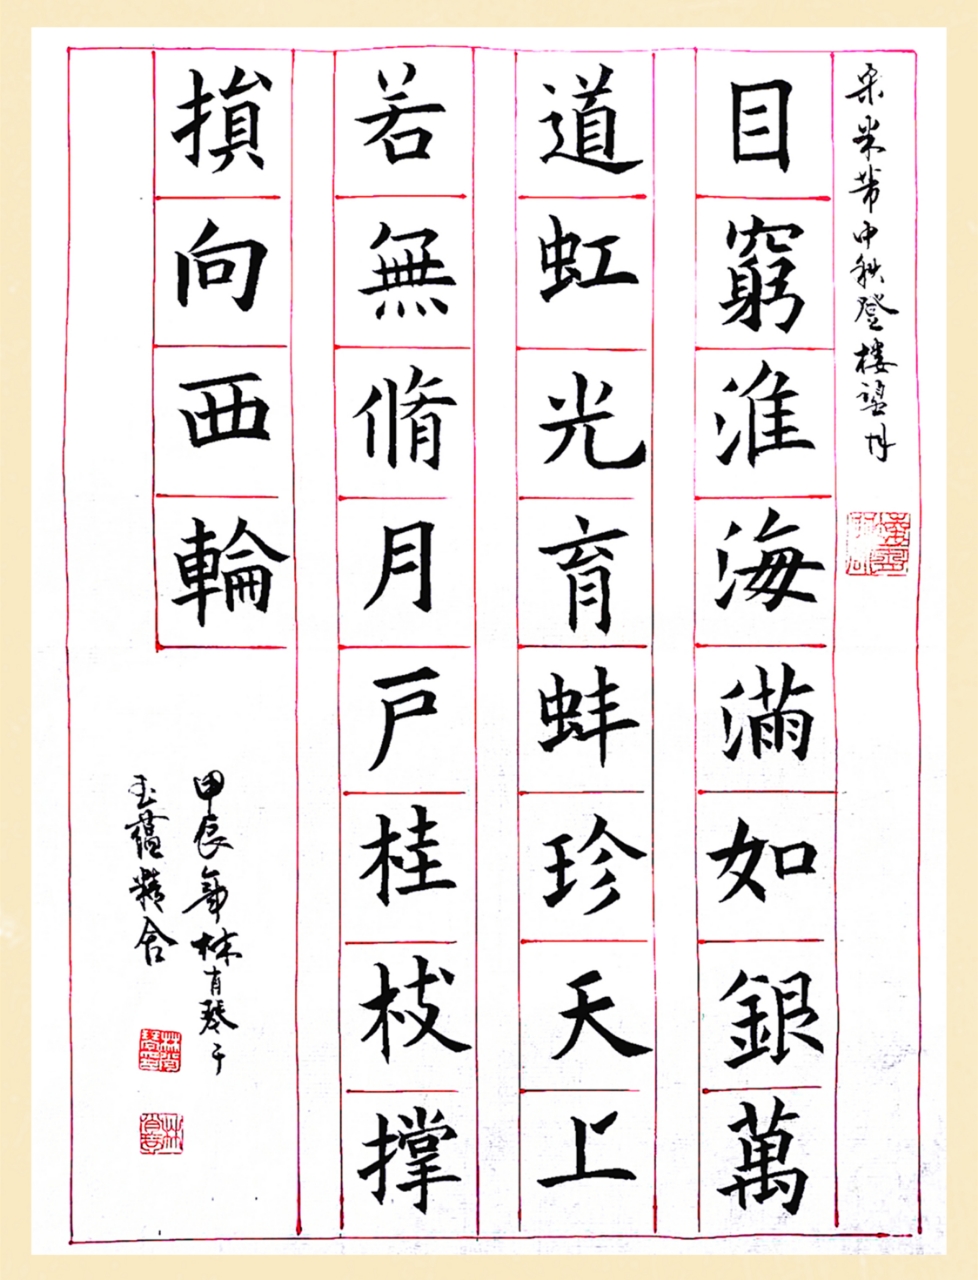 宋米芾中秋登楼望月
目窮淮海滿如銀萬
道虹光育蚌珍天上
若無脩月戸桂枝撐
損向西輪
甲辰年林肖琴于
玉蘊精舍